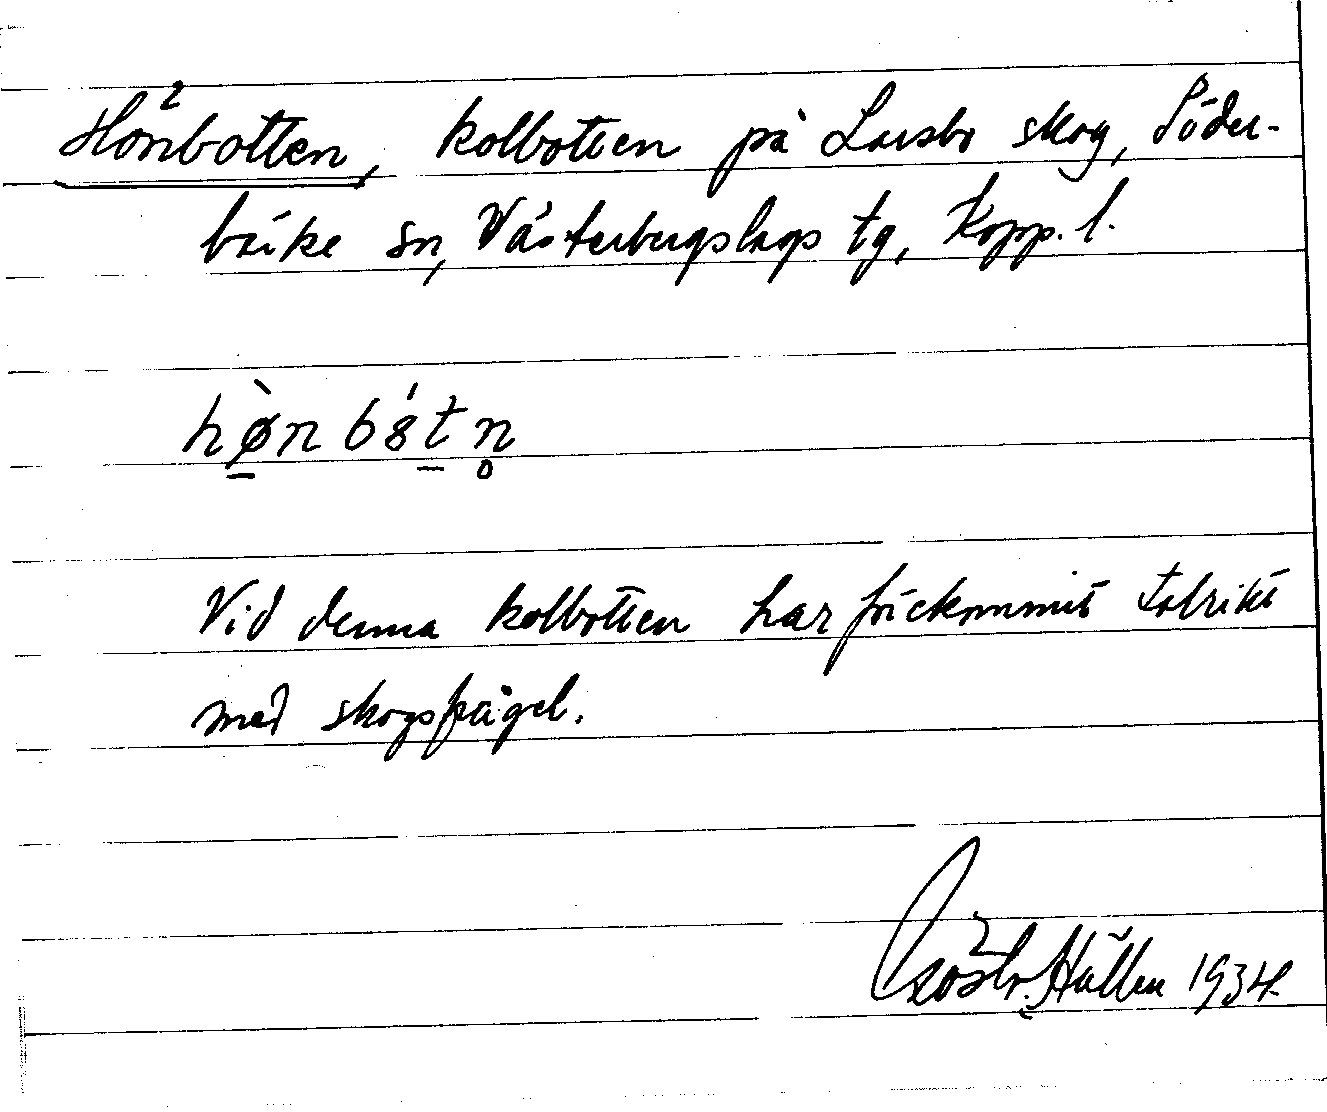 Hönbotten, kolbotten på Larsbo skog, Söder-
bärke sn, Västerbergslags tg, Kopp. l.
hø̀nbótn̥
Vid denna kolbotten har förekommit talrikt
med skogsfågel.
Hallen 1934.